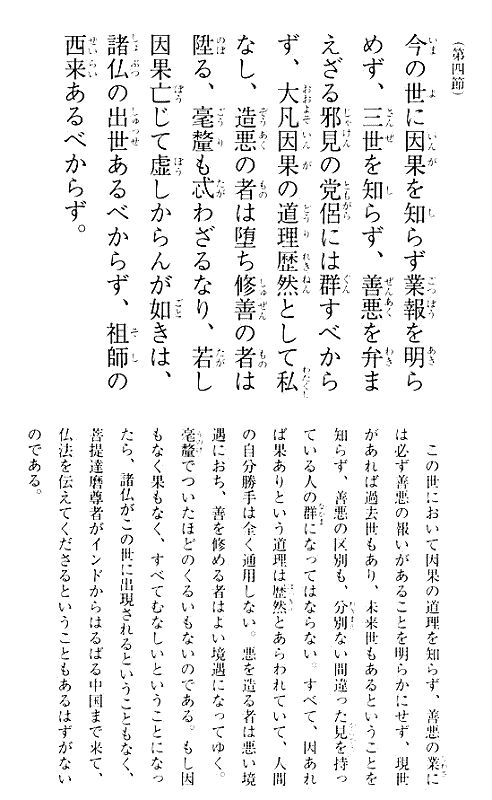 （第四節）
今の世に因果を知らず業報を明ら
めず、三世を知らず、善悪を弁ま
えざる邪見の党侶には群すべから
ず、大凡因果の道理歴然として私
なし、造悪の者は堕ち修善の者は
陞る、毫釐も忒わざるなり、若し
因果亡じて虚しからんが如きは、
諸仏の出世あるべからず、祖師の
西来あるべからず。
この世において因果の道理を知らず、善悪の業に
は必ず善悪の報いがあることを明らかにせず、現世
があれば過去世もあり、未来世もあるということを
知らず、善悪の区別も、分別ない間違った見を持っ
ている人の群になってはならない。すべて、因あれ
ば果ありという道理は歴然とあらわれていて、人間
の自分勝手は全く通用しない。悪を造る者は悪い境
遇におち、善を修める者はよい境遇になってゆく。
毫釐でついたほどのくるいもないのである。もし因
もなく果もなく、すべてむなしいということになっ
たら、諸仏がこの世に出現されるということもなく、
菩提達磨尊者がインドからはるばる中国まで来て、
仏法を伝えてくださるということもあるはずがない
のである。